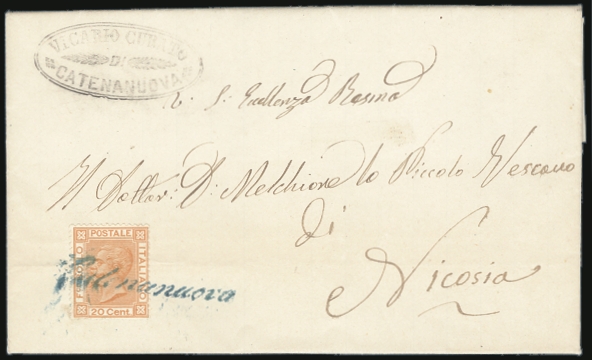 VICARIO CURATO
DI
CATENANUOVA
A S. Eccellenza Resma
Il Dottor: D: Melchiore lo Piccolo Vescovo
di
Nicosia
FRANCO BOLLO
POSTALE
ITALIANO
20 Cent.
Catenanuova